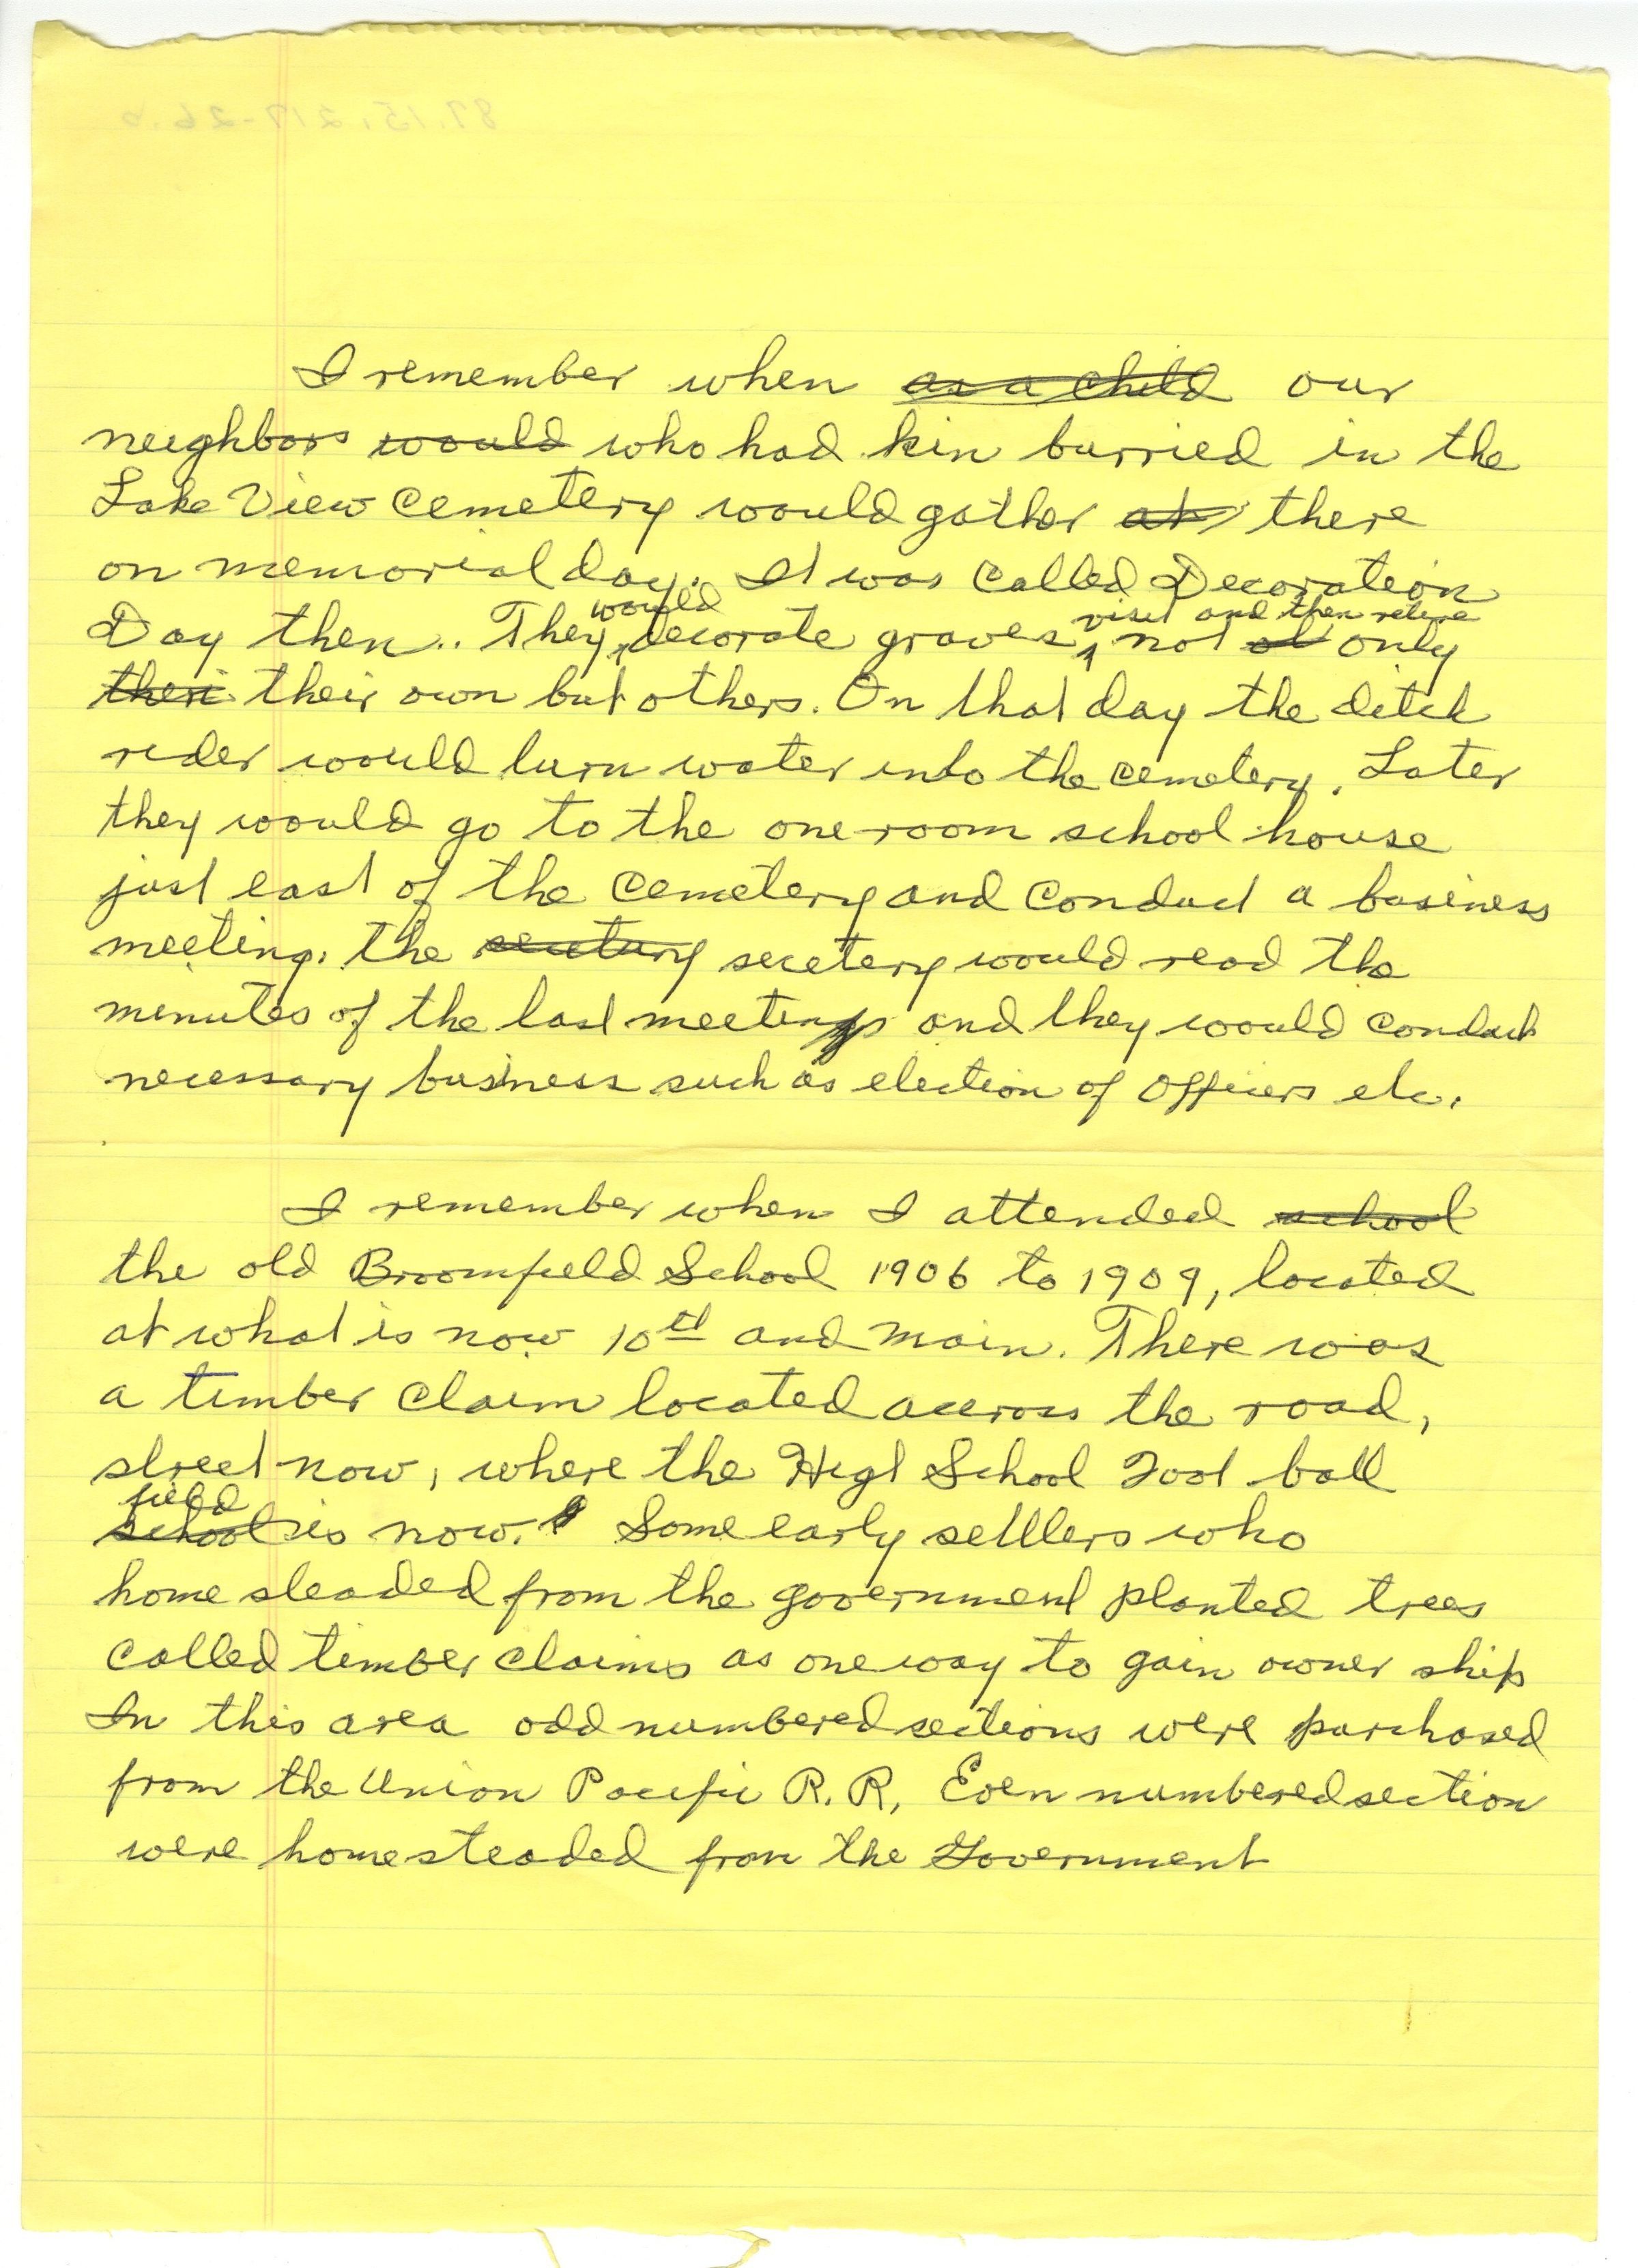 I remember when as a child our
neighbors would who had kin burried in the
Lake View Cemetery would gather at there
on memorial day. It was called Decoration
Day then.. They would decorate graves, visit and then retire not only
their their own but others. On that day the ditch
rider would turn water into the cemetery. Later
they would go to the one room school house
just east of the cemetery and conduct a business
meeting. the secetery would read the
minutes of the last meeting and they would conduct
necessary business such as election of officers etc.
I remember when I attended school
the old Broomfield School 1906 to 1909, located
at what is now 10th and main. There was
a timber claim located accross the road,
street now, where the High School Foot ball
field
school is now. Some early settlers who
home steaded from the government planted trees
called timber claims as one way to gain owner ship
In this area odd numbered sections were purchased
from the Union Pacific R.R, Even numbered section
were homesteaded from the Government